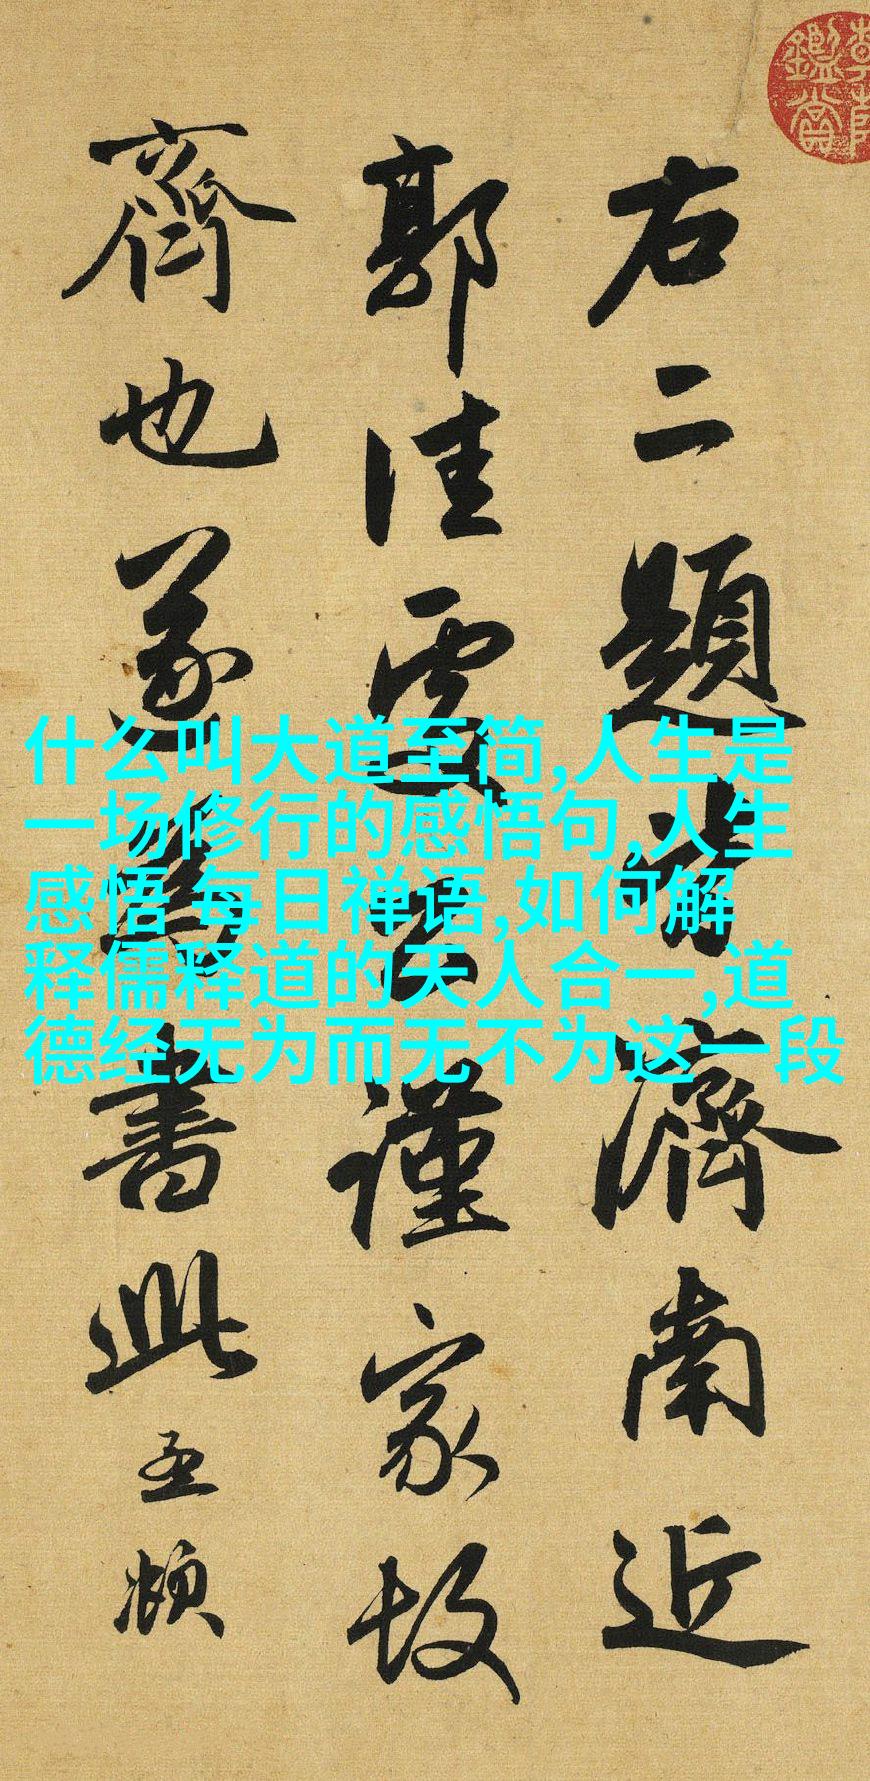 右二題皆濟南近
郭佳處公謹家故
齊也遂為書此孟頫
鑑賞
什么叫大道至简,人生是
一场修行的感悟句,人生
感悟 每日禅语,如何解
释儒释道的天人合一,道
德经无为而无不为这一段